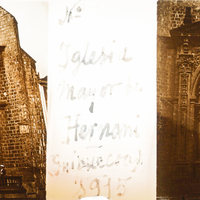 Nº
Iglesia
Mayor
Hernani
Guipuzcoa
1915